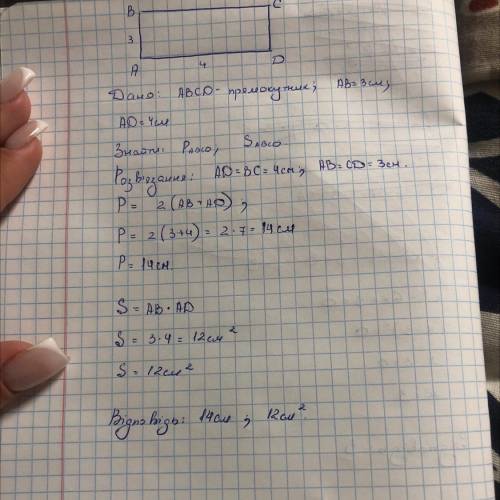 B C
3
A 4 D
Дано: ABCD - прямокутник; AB = 3см;
AD = 4см
Знайти: PABCD; SABCD
Розв'язання: AD = BC = 4см; AB = CD = 3см.
P = 2(AB + AD);
P = 2(3+4) = 2·7 = 14см
P = 14см.
S = AB · AD
S = 3·4 = 12см²
S = 12см²
Відповідь: 14см; 12см².